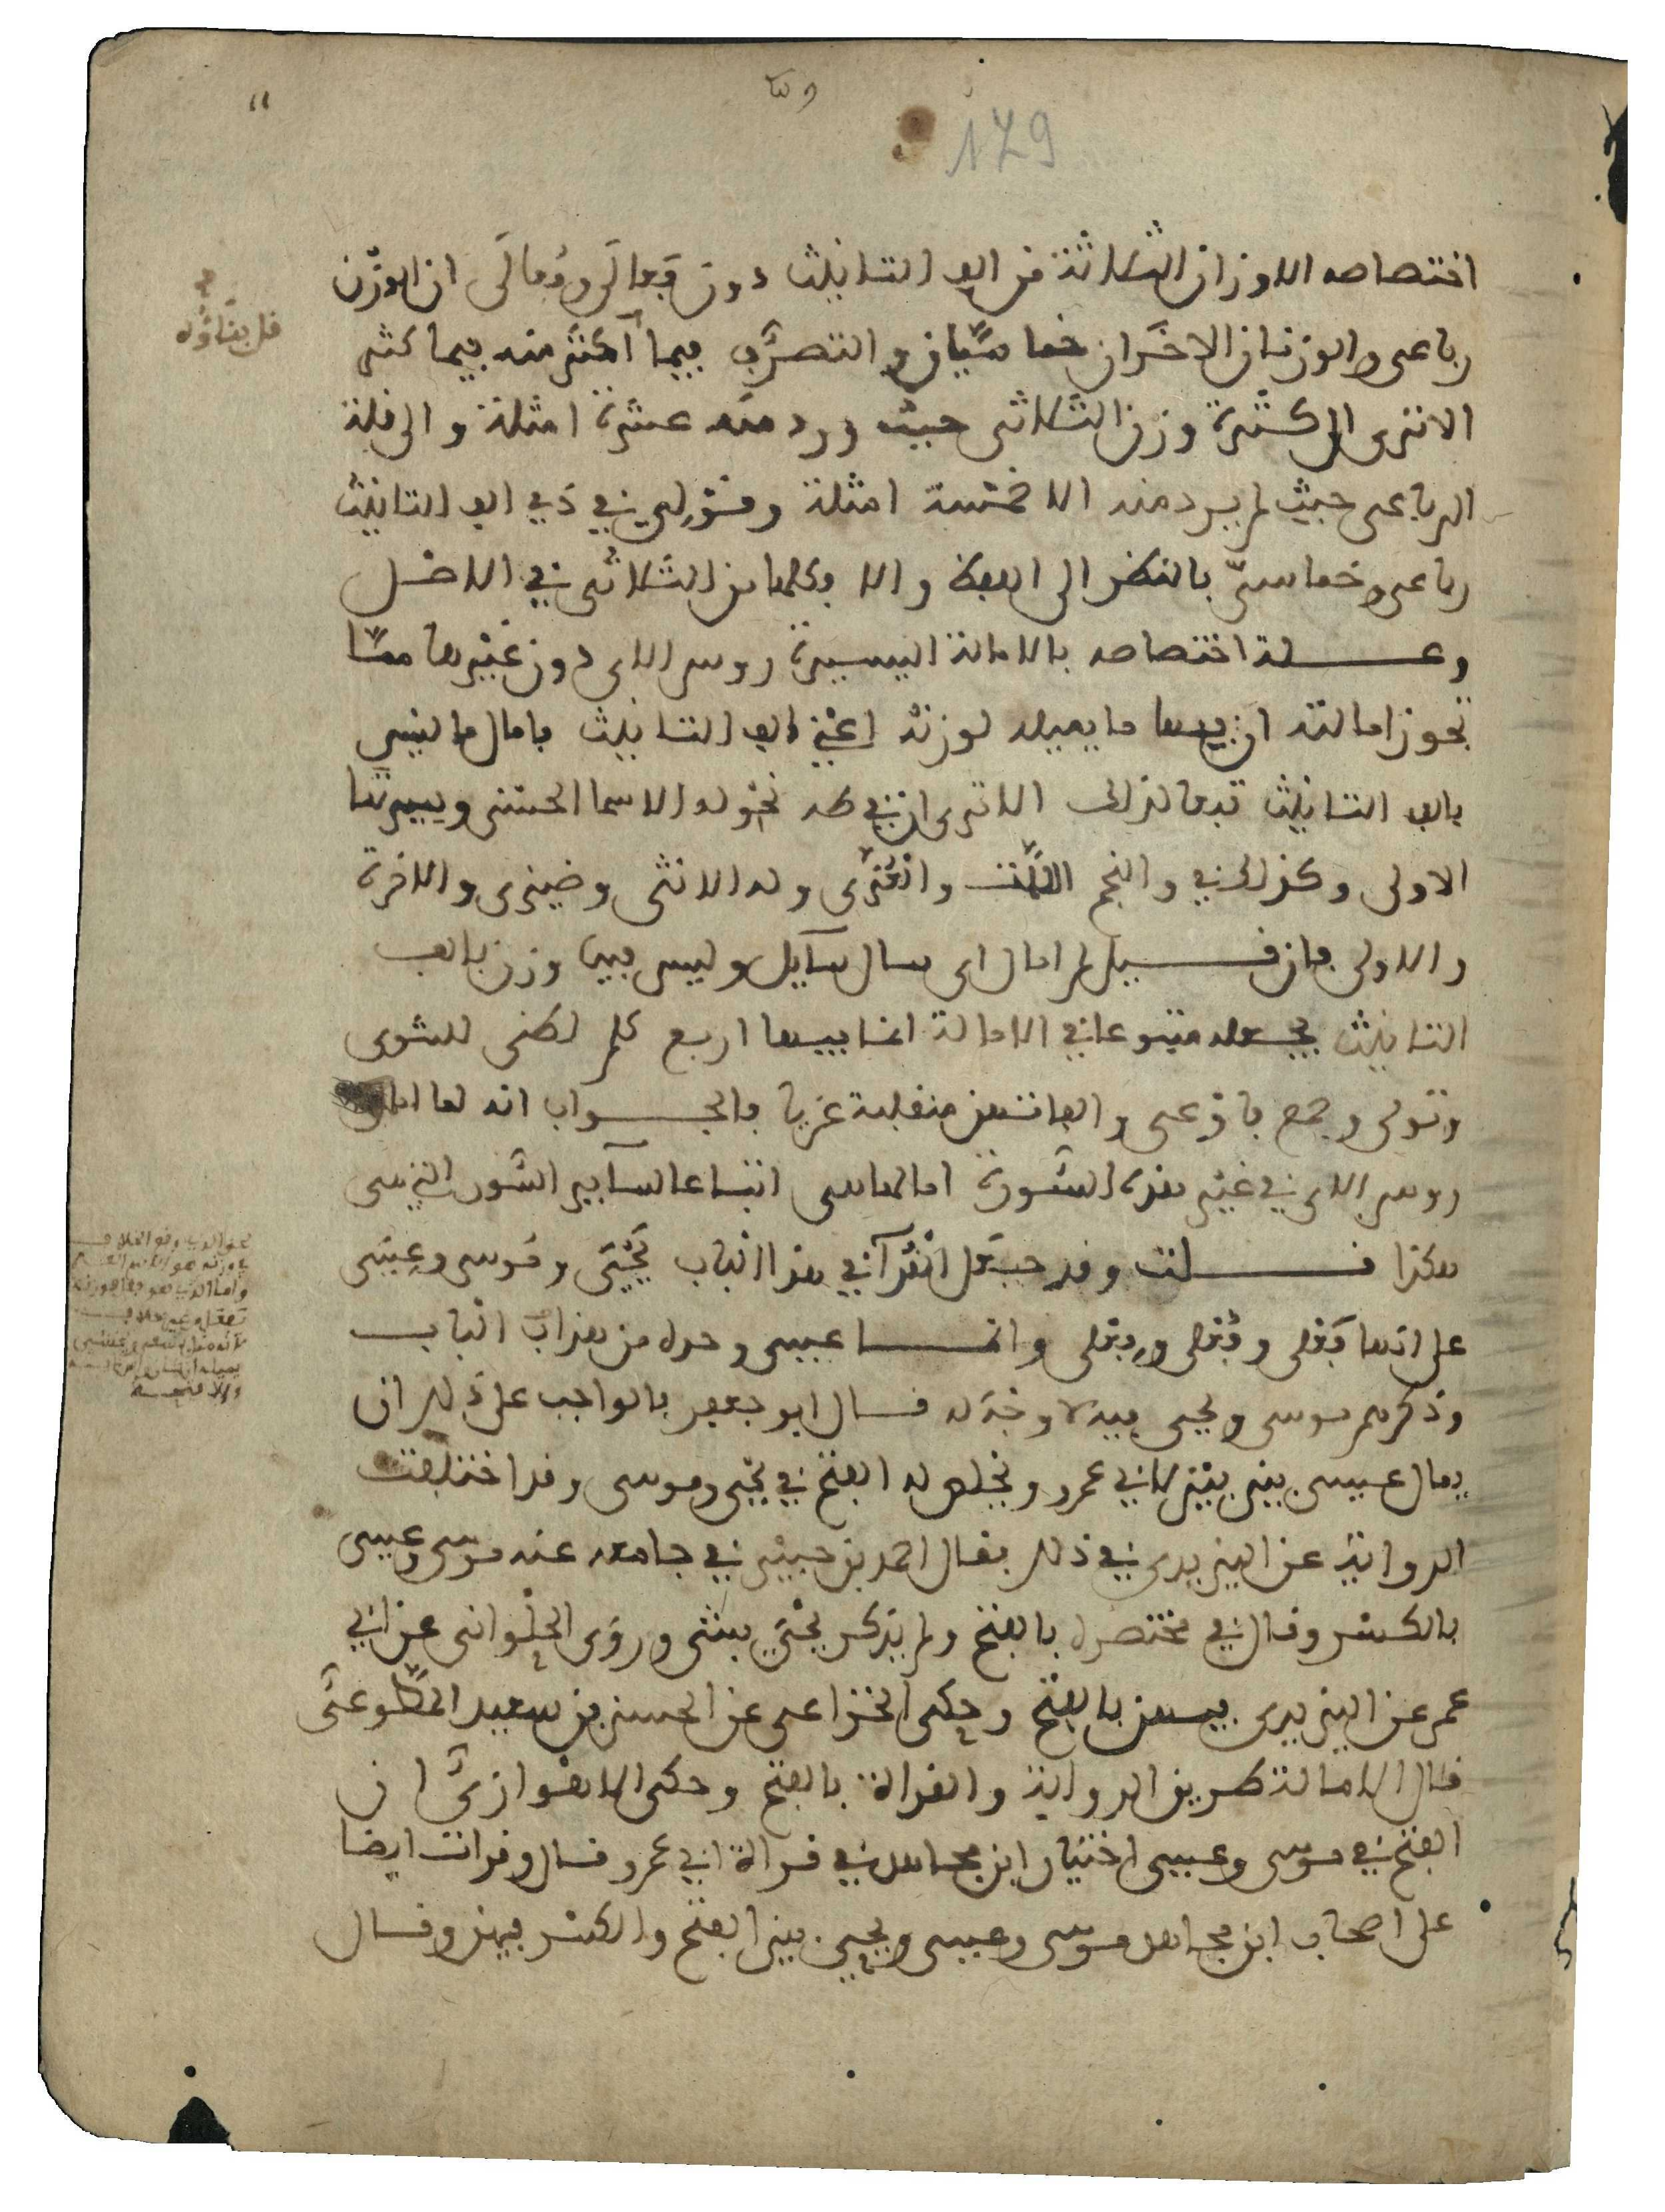 179
اختصاصه الاوزان الثلاثة من الف التانيث دون فَعالَى وفُعالَى ان الوزن
رباعى والوزنان الاخران خماسيان والتصرف فيما اكثر منه فيما كثر
الا ترى الى كثرة وزن الثلاثى حيث ورد منه عشرة امثلة والى قلة
الرباعى حيث لم يرد منه الا خمسة امثلة وقولى في ذي الف التانيث
رباعى وخماسىّ بالنظر الى اللفظ والا فكلها من الثلاثى في الاصل
وعلة اختصاصه بالامالة اليسيرة روس الاى دون غيرها مما
تجوز امالته ان فيها ما يميله لوزنه اعني الف التانيث فامال ما ليس
بالف التانيث تبعا لذلك الا ترى ان في طه نحو له الاسما الحسنى وسيرتها
الاولى وكذلك في والنجم اللّت والعُزَّى وله الانثى وضيزى والاخرة
والاولى فان قيل لم امال اى سال سآيل وليس فيها وزن بالف
التانيث يجعله متبوعا في الامالة انما فيها اربع كلم لظى للشوى
وتولى وجمع فاوعى والفاتهن منقلبة عن يا فالجواب انه لما امال
روس الاى في غير هذه السورة امال هاسى اتباعا لسآير السور التى سى
هكذا قلت وقد حبعل القرآ في هذا الباب يَحْيَى ومُوسى وعِيسَى
على انها فَعْلى وفُعْلى وفِعْلى وانما عيسى وحده من هذا الباب
وذكرهم موسى ويحيى فيه لا وجه له قال ابو جعفر فالواجب على ذلك ان
يمال عيسى بين بين لابي عمرو ويخلص له الفتح في يحيى وموسى وقد اختلفت
الرواية عن اليزيدى في ذلك فقال احمد بن جبير في جامعه عنه موسى وعيسى
بالكسر وقال في مختصره بالفتح ولم يذكر يحيى بشى وروى الحلوانى عن ابي
عمر عن اليزيدى فيهن بالفتح وحكى الخزاعى عن الحسن بن سعيد المطوعى
قال الامالة طريق الرواية والقراة بالفتح وحكى الاهوازيّ ان
الفتح في موسى وعيسى اختيار ابن مجاهد في قراة ابي عمرو قال وقرات ايضا
على اصحاب ابن مجاهد موسى وعيسى ويحيى بين الفتح والكسر فيهن وقال
قل بقاؤه